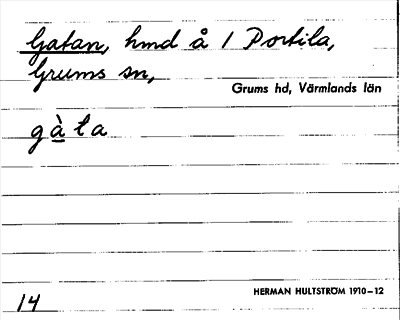 Gatan, hmd å 1 Portila,
Grums sn,
Grums hd, Värmlands län
gàta
HERMAN HULTSTRÖM 1910–12
14